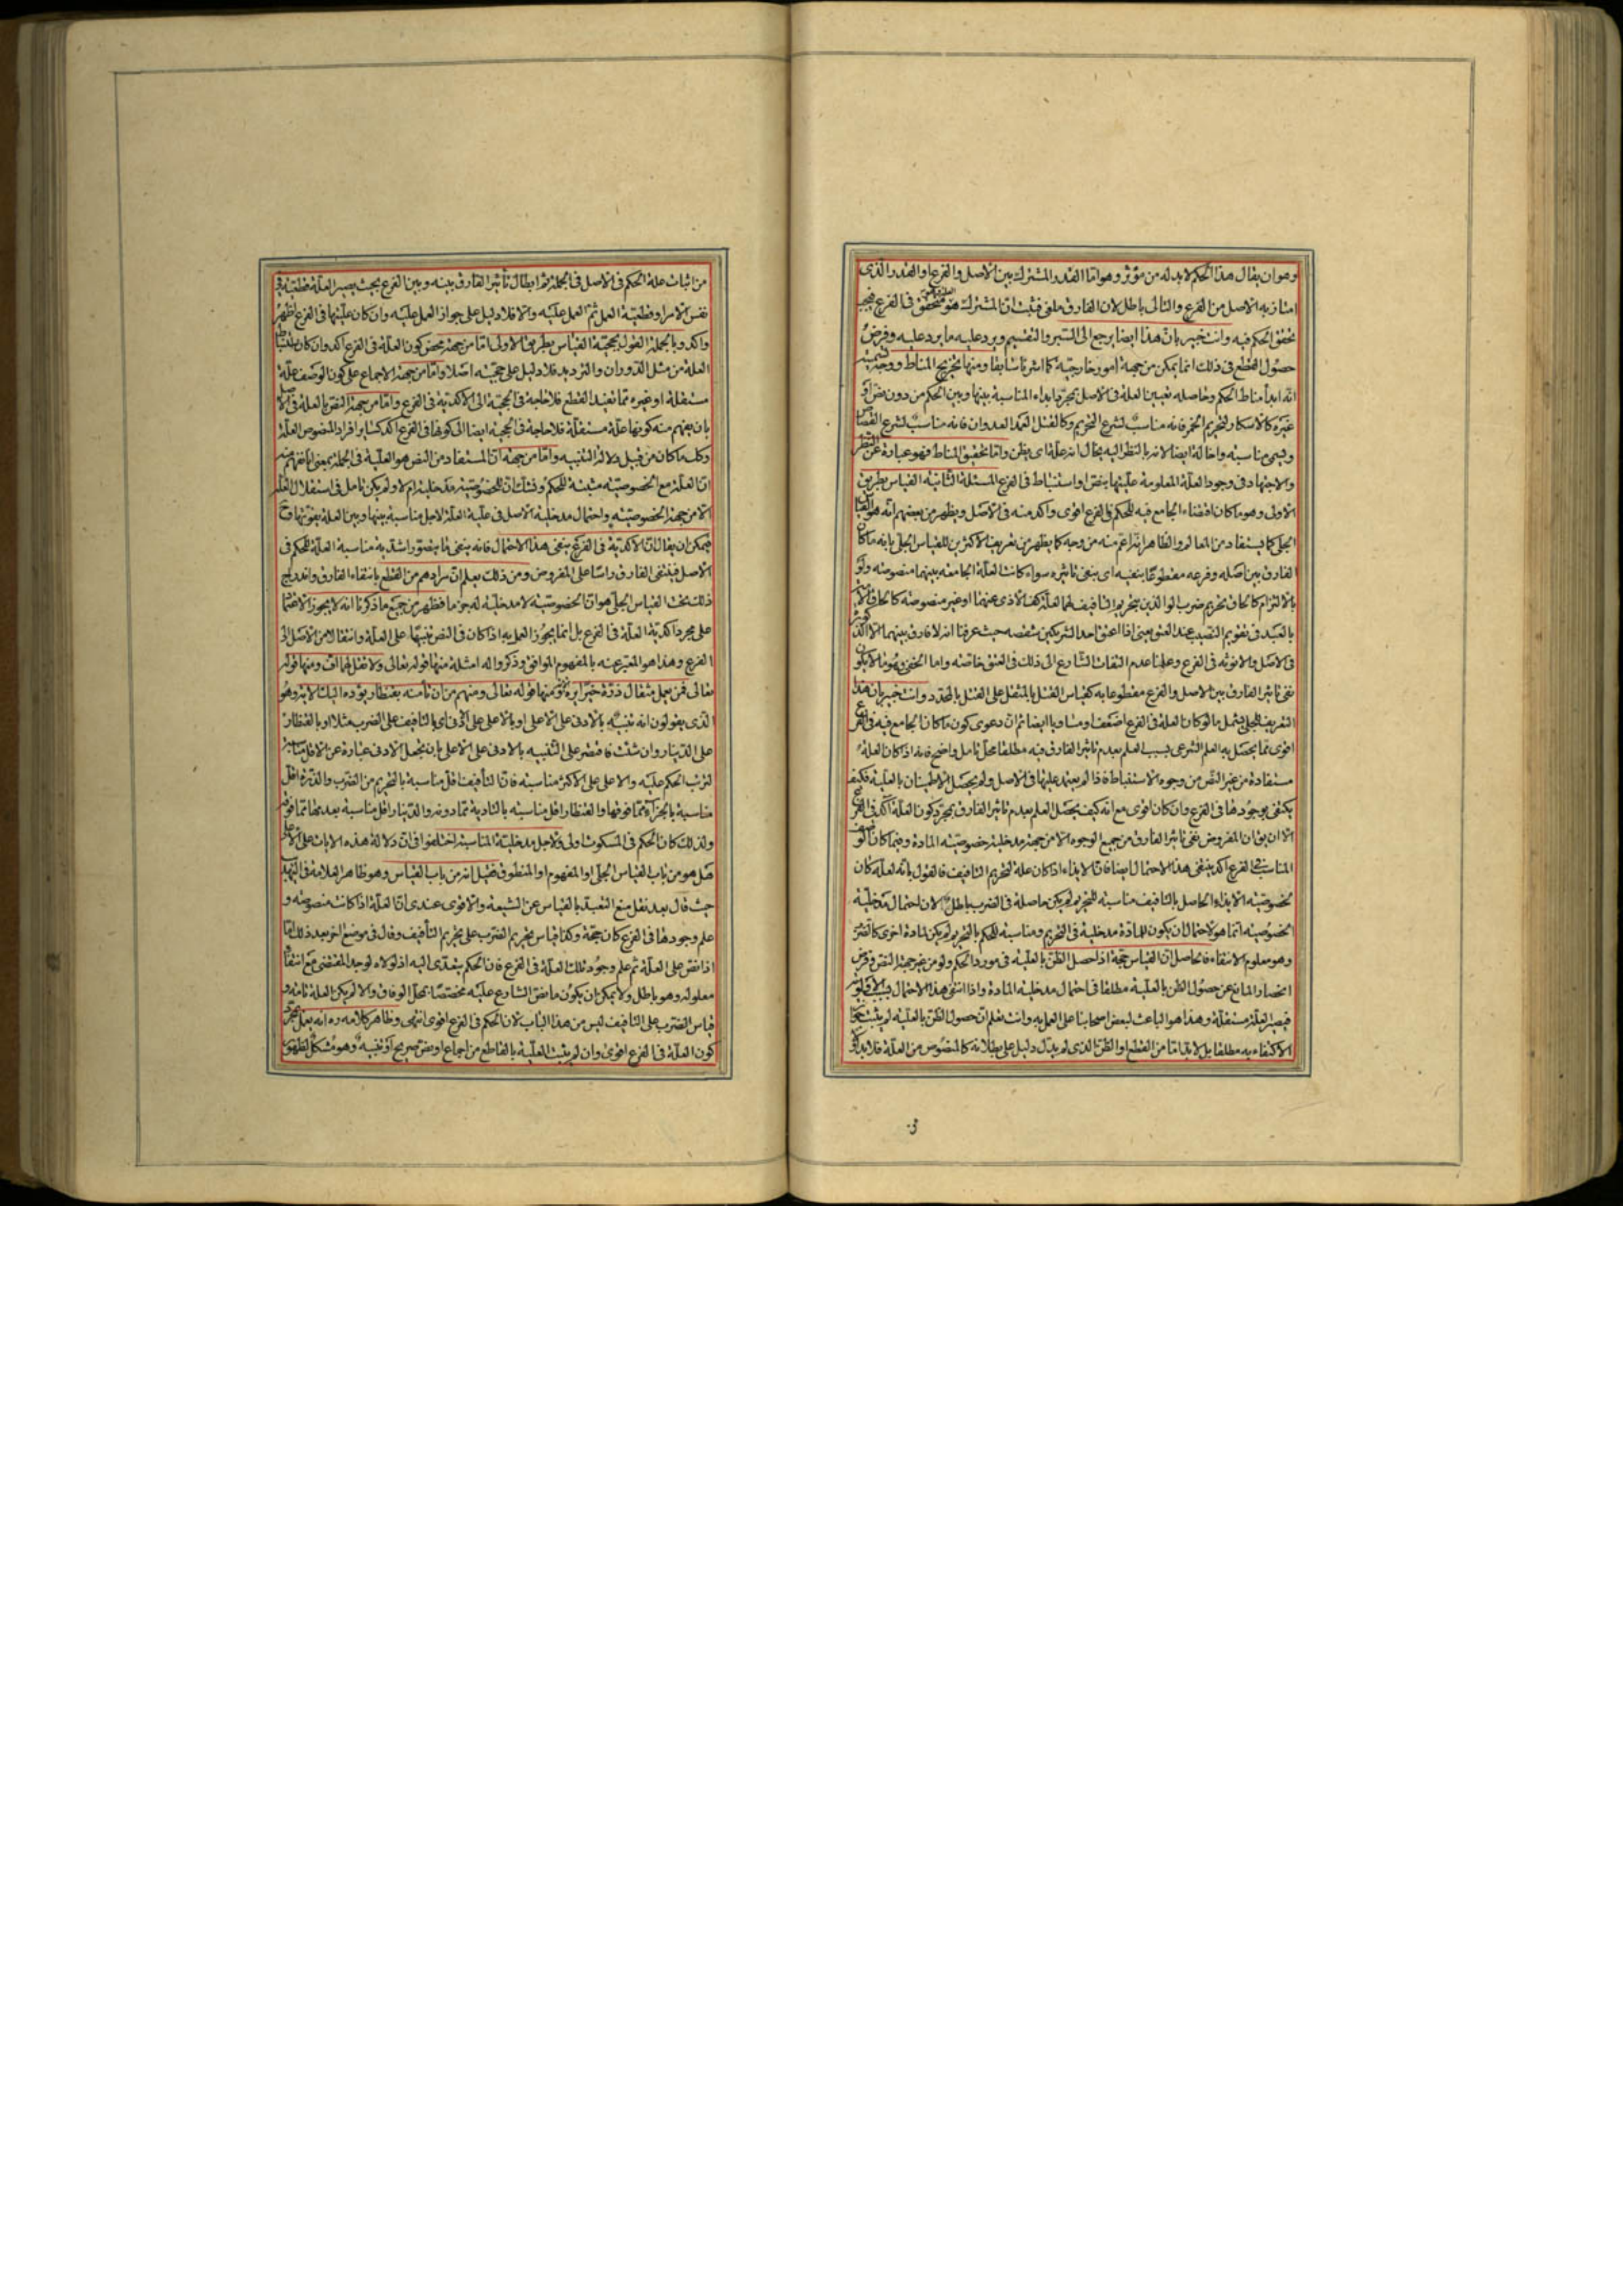 وهو ان يقال هذا الحكم لا بد له من مؤثر وهو اما القدر المشترك بين الاصل والفرع او القدر الذى
امتاز به الاصل من الفرع والثانى باطل لان الفارق ملغى فيثبت ان المشترك هو متحقق فى الفرع فيجب
تحقق الحكم فيه وانت خبير بان هذا ايضا يرجع الى السبر والتقسيم ويرد عليه ما يرد عليه وفرض
حصول القطع فى ذلك انما يمكن من جهة امور خارجية كما اشرنا سابقا ومنها تخريج المناط ووجه تسميته
انه ابدأ مناط الحكم وحاصله تعيين العلة فى الاصل بمجرد ابداء المناسبة بينها وبين الحكم من دون نص او
غيره كالاسكار لتحريم الخمر فانه مناسب لشرع التحريم وكالقتل العمد العدوان فانه مناسب لشرع القصاص
ويسمى مناسبة واخالة ايضا لانه بالنظر اليه يخال انه علة اى يظن واما تحقيق المناط فهو عبارة عن النظر
والاجتهاد فى وجود العلة المعلومة عليتها بنص او استنباط فى الفرع المسئلة الثانية القياس بطريق
الاولى وهو ما كان اقتضاء الجامع فيه للحكم فى الفرع اقوى واكد منه فى الاصل ويظهر من بعضهم انه هو القياس
الجلى كما يستفاد من المعالم والظاهر انه اعم منه من وجه كما يظهر من تعريف الاكثرين للقياس الجلى بانه ما كان
الفارق بين اصله وفرعه مقطوعا بنفيه اى بنفى تاثيره سواء كانت العلة الجامعة بينهما منصوصة ولو
بالالتزام كالحاق تحريم ضرب الوالدين بتحريم التافيف لهما لعلة كف الاذى عنهما او غير منصوصة كالحاق الامة
بالعبد فى تقويم النصيب عند العتق يعنى اذا اعتق احد الشريكين شقصه حيث عرفنا انه لا فارق بينهما الا الذكورة
فى الاصل والانوثة فى الفرع وعلمنا عدم التفات الشارع الى ذلك فى العتق خاصة واما الخفى فهو ما لا يكون
نفى تاثير الفارق بين الاصل والفرع مقطوعا به كقياس القتل بالمثقل على القتل بالمحدد وانت خبير بان هذا
التعريف للجلى يشمل ما لو كان العلة فى الفرع اضعف او مساويا ايضا ثم ان دعوى كون ما كان الجامع فيه فى الفرع
اقوى مما يحصل به العلم الشرعى بسبب العلم بعدم تاثير الفارق فيه مطلقا محل تامل واضح فانه اذا كان العلة
مستفادة من غير النص من وجوه الاستنباط فاذا لم يعتمد عليها فى الاصل ولم يحصل الاطمينان بالعلية فكيف
يكتفى بوجودها فى الفرع وان كان اقوى مع انه كيف يحصل العلم بعدم تاثير الفارق بمجرد كون العلة آكد فى الفرع
الا ان يقال المفروض نفى تاثير الفارق من جميع الوجوه الا من جهة مدخلية خصوصية المادة وفيما كان الوصف
المناسب فى الفرع آكد ينتفى هذا الاحتمال ايضا فان الايذاء اذا كان علة لتحريم التافيف فالقول بانه لعله كان
لخصوصية الايذاء الحاصل بالتافيف مناسبة للتحريم لم يكن حاصلة فى الضرب باطل لان احتمال مدخلية
الخصوصية انما هو لاحتمال ان يكون للمادة مدخلية فى التحريم ومناسبة للحكم بالتحريم لم يكن لمادة اخرى كالضرب
وهو معلوم الانتفاء فالحاصل ان القياس حجة اذا حصل الظن بالعلية فى مورد الحكم ولو من غير جهة النص وفرض
انحصار المانع عن حصول الظن بالعلية مطلقا فى احتمال مدخلية المادة واذا انتفى هذا الاحتمال بسبب الاولوية
فيصير العلة مستقلة وهذا هو الباعث لبعض اصحابنا على العمل به وانت تعلم ان حصول الظن بالعلية لم يثبت
الاكتفاء به مطلقا بل لا بد اما من القطع او الظن الذى لم يدل دليل على بطلانه كالمنصوص من العلة فلا بد
من اثبات علة الحكم فى الاصل فى الجملة ثم ابطال تأثير الفارق بينه وبين الفرع بحيث يصير العلة قطعية فى
نفس الامر او قطعية العمل ثم العمل عليه والا فلا دليل على جواز العمل عليه وان كان عليتها فى الفرع اظهر
واكد وبالجملة القول بحجية القياس بطريق الاولى اما من جهة محض كون العلة فى الفرع آكد وان كان
العلة من مثل الدوران والترديد فلا دليل على حجيته اصلا واما من جهة الاجماع على كون الوصف علة
مستقلة او غيره مما يفيد القطع فلا حاجة فى الحجية الى الاكدية فى الفرع واما من جهة النص بالعلة فى الاصل
بان يفهم منه كونها علة مستقلة فلا حاجة فى الحجية ايضا الى كونها فى الفرع آكد كساير افراد المنصوص العلة
وكل ما كان من قبيل دلالة التنبيه واما من جهة ان المستفاد من النص هو العلية فى الجملة بمعنى انا نفهم منه
ان العلة مع الخصوصية مثبتة للحكم وشككنا ان للخصوصية مدخلية ام لا ولم يكن تامل فى استقلال العلة
الا من جهة الخصوصية واحتمال مدخلية الاصل فى علية العلة لاجل مناسبة بينها وبين العلة يقويها
فيمكن ان يقال ان الاكدية فى الفرع ينفى هذا الاحتمال فانه ينفى ما يتصور اشدية مناسبة العلة للحكم فى
الاصل فينتفى الفارق رأسا على المفروض ومن ذلك يعلم ان مرادهم من القطع بانتفاء الفارق واندراج
ذلك تحت القياس الجلى هو ان الخصوصية لا مدخلية له جزما فظهر من جميع ما ذكرنا انه لا يجوز الاعتماد
على مجرد اكدية العلة فى الفرع بل انما يجوز العمل به اذا كان فى النص تنبيها على العلة وانتقالا من الاصل الى
الفرع وهذا هو المعبر عنه بالمفهوم الموافق وذكروا له امثلة منها قوله تعالى ولا تقل لهما اف ومنها قوله
تعالى فمن يعمل مثقال ذرة خيرا يره ومنها قوله تعالى ومنهم من ان تأمنه بقنطار يؤده اليك الاية وهو
الذى يقولون انه تنبيه بالادنى على الاعلى او بالاعلى على الادنى اى بالتافيف على الضرب مثلا او بالقنطار
على الدينار وان شئت فاقتصر على التنبيه بالادنى على الاعلى بان يجعل الادنى عبارة عن الاقل مناسبة
لترتب الحكم عليه والاعلى على الاكثر مناسبة فان التأفيف اقل مناسبة بالتحريم من الضرب والذرة اقل
مناسبة بالجزاء مما فوقها والقنطار اقل مناسبة بالتادية مما دونه والدينار اقل مناسبة بعدمها مما فوقه
ولذلك كان الحكم فى المسكوت اولى ولاجل مدخلية المناسبة اختلفوا فى ان دلالة هذه الايات على الاعلى
هل هو من باب القياس الجلى او المفهوم او المنطوق فقيل انه من باب القياس وهو ظاهر العلامة فى التهذيب
حيث قال بعد نقل منع التعبد بالقياس عن الشيعة والاقوى عندى ان العلة اذا كانت منصوصة و
علم وجودها فى الفرع كان حجة وكذا قياس تحريم الضرب على تحريم التأفيف وقال فى موضع اخر بعد ذلك اما
اذا نص على العلة ثم علم وجود تلك العلة فى الفرع فان الحكم يتعدى اليه اذ لولاه لوجد المقتضى مع انتفاء
معلوله وهو باطل ولا يمكن ان يكون ما نص الشارع عليه مختصا بمحل الوفاق والا لم يكن العلة تامة و
قياس الضرب على التافيف ليس من هذا الباب لان الحكم فى الفرع اقوى انتهى وظاهر كلامه ره انه يعمل بمجرد
كون العلة فى الفرع اقوى وان لم يثبت العلية بالقاطع من اجماع او نص صريح او تنبيه وهو مشكل لظهور